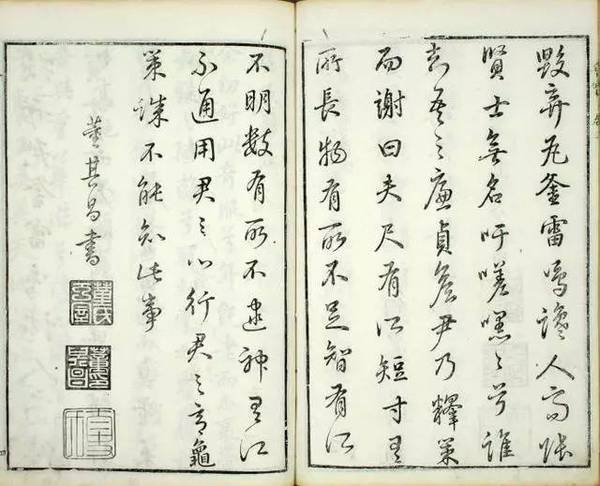 毀弃瓦釜雷鳴讒人高張
賢士無名吁嗟嘿〻兮誰
知吾之廉貞詹尹乃釋策
而謝曰夫尺有所短寸有
所長物有所不足智有所
不明數有所不逮神有所
不通用君之心行君之意龜
策誠不能知此事
董其昌書